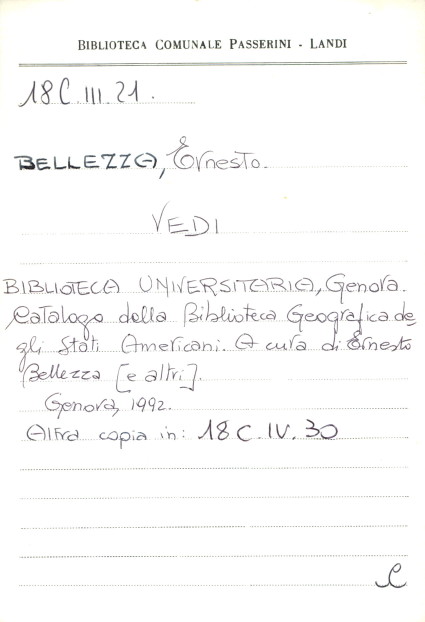 BIBLIOTECA COMUNALE PASSERINI - LANDI
18C.III.21.
BELLEZZA, Ernesto.
VEDI
BIBLIOTECA UNIVERSITARIA, Genova.
Catalogo della Biblioteca Geografica de
gli Stati Americani. A cura di Ernesto
Bellezza [e altri].
Genova, 1992.
Altra copia in: 18C.IV.30